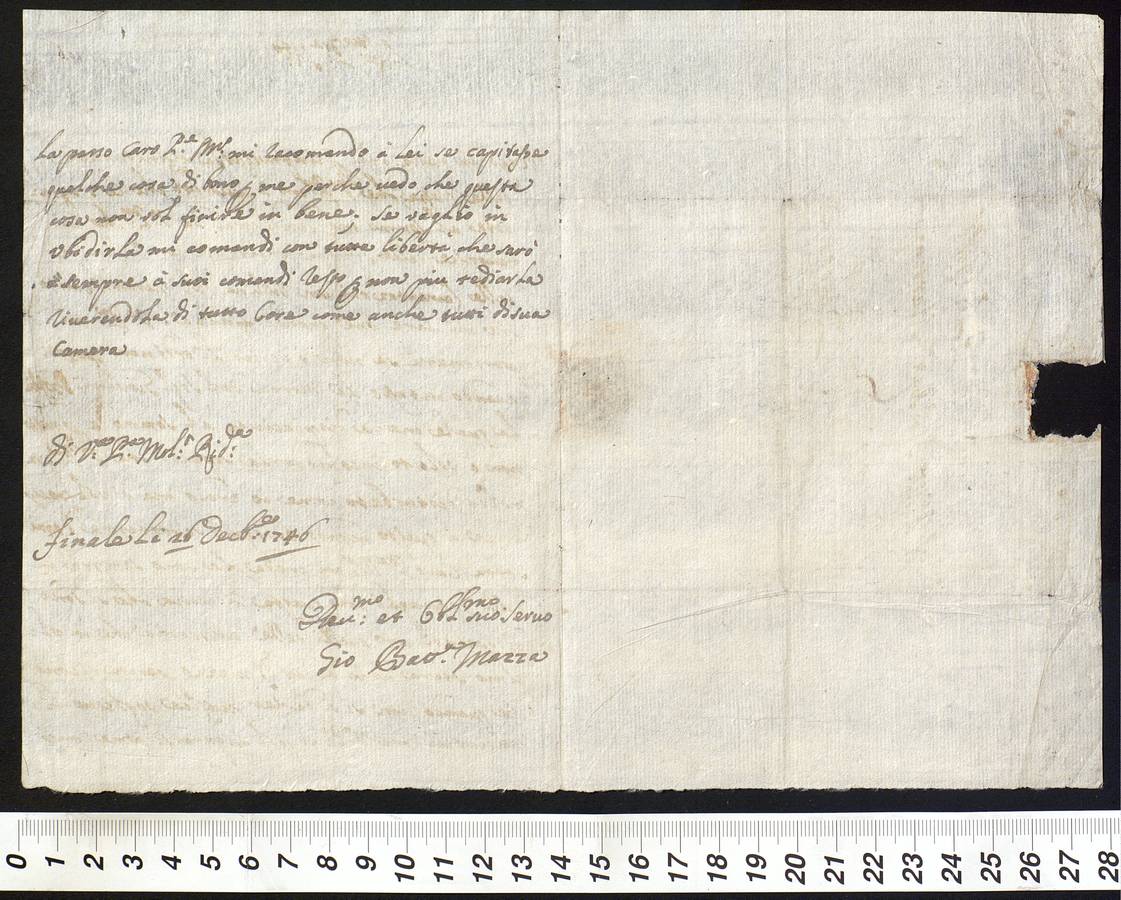 la passo Caro P.re M.l mi racomando à Lei se capitasse
qualche cosa di bono p me perche vedo che questa
cosa non vol finirle in bene. se vaglio in
Vbidirla mi comandi con tutta libertà, che sarò
sempre à suoi comandi resto p non piu tediarla
riverendola di tutto Core come anche tutti di sua
Camera
di V.
finale Li 26 Decb.e 1746
Dev.mo et Obl.mo suo Servo
Gio Batt.a Mazza
0 1 2 3 4 5 6 7 8 9 10 11 12 13 14 15 16 17 18 19 20 21 22 23 24 25 26 27 28